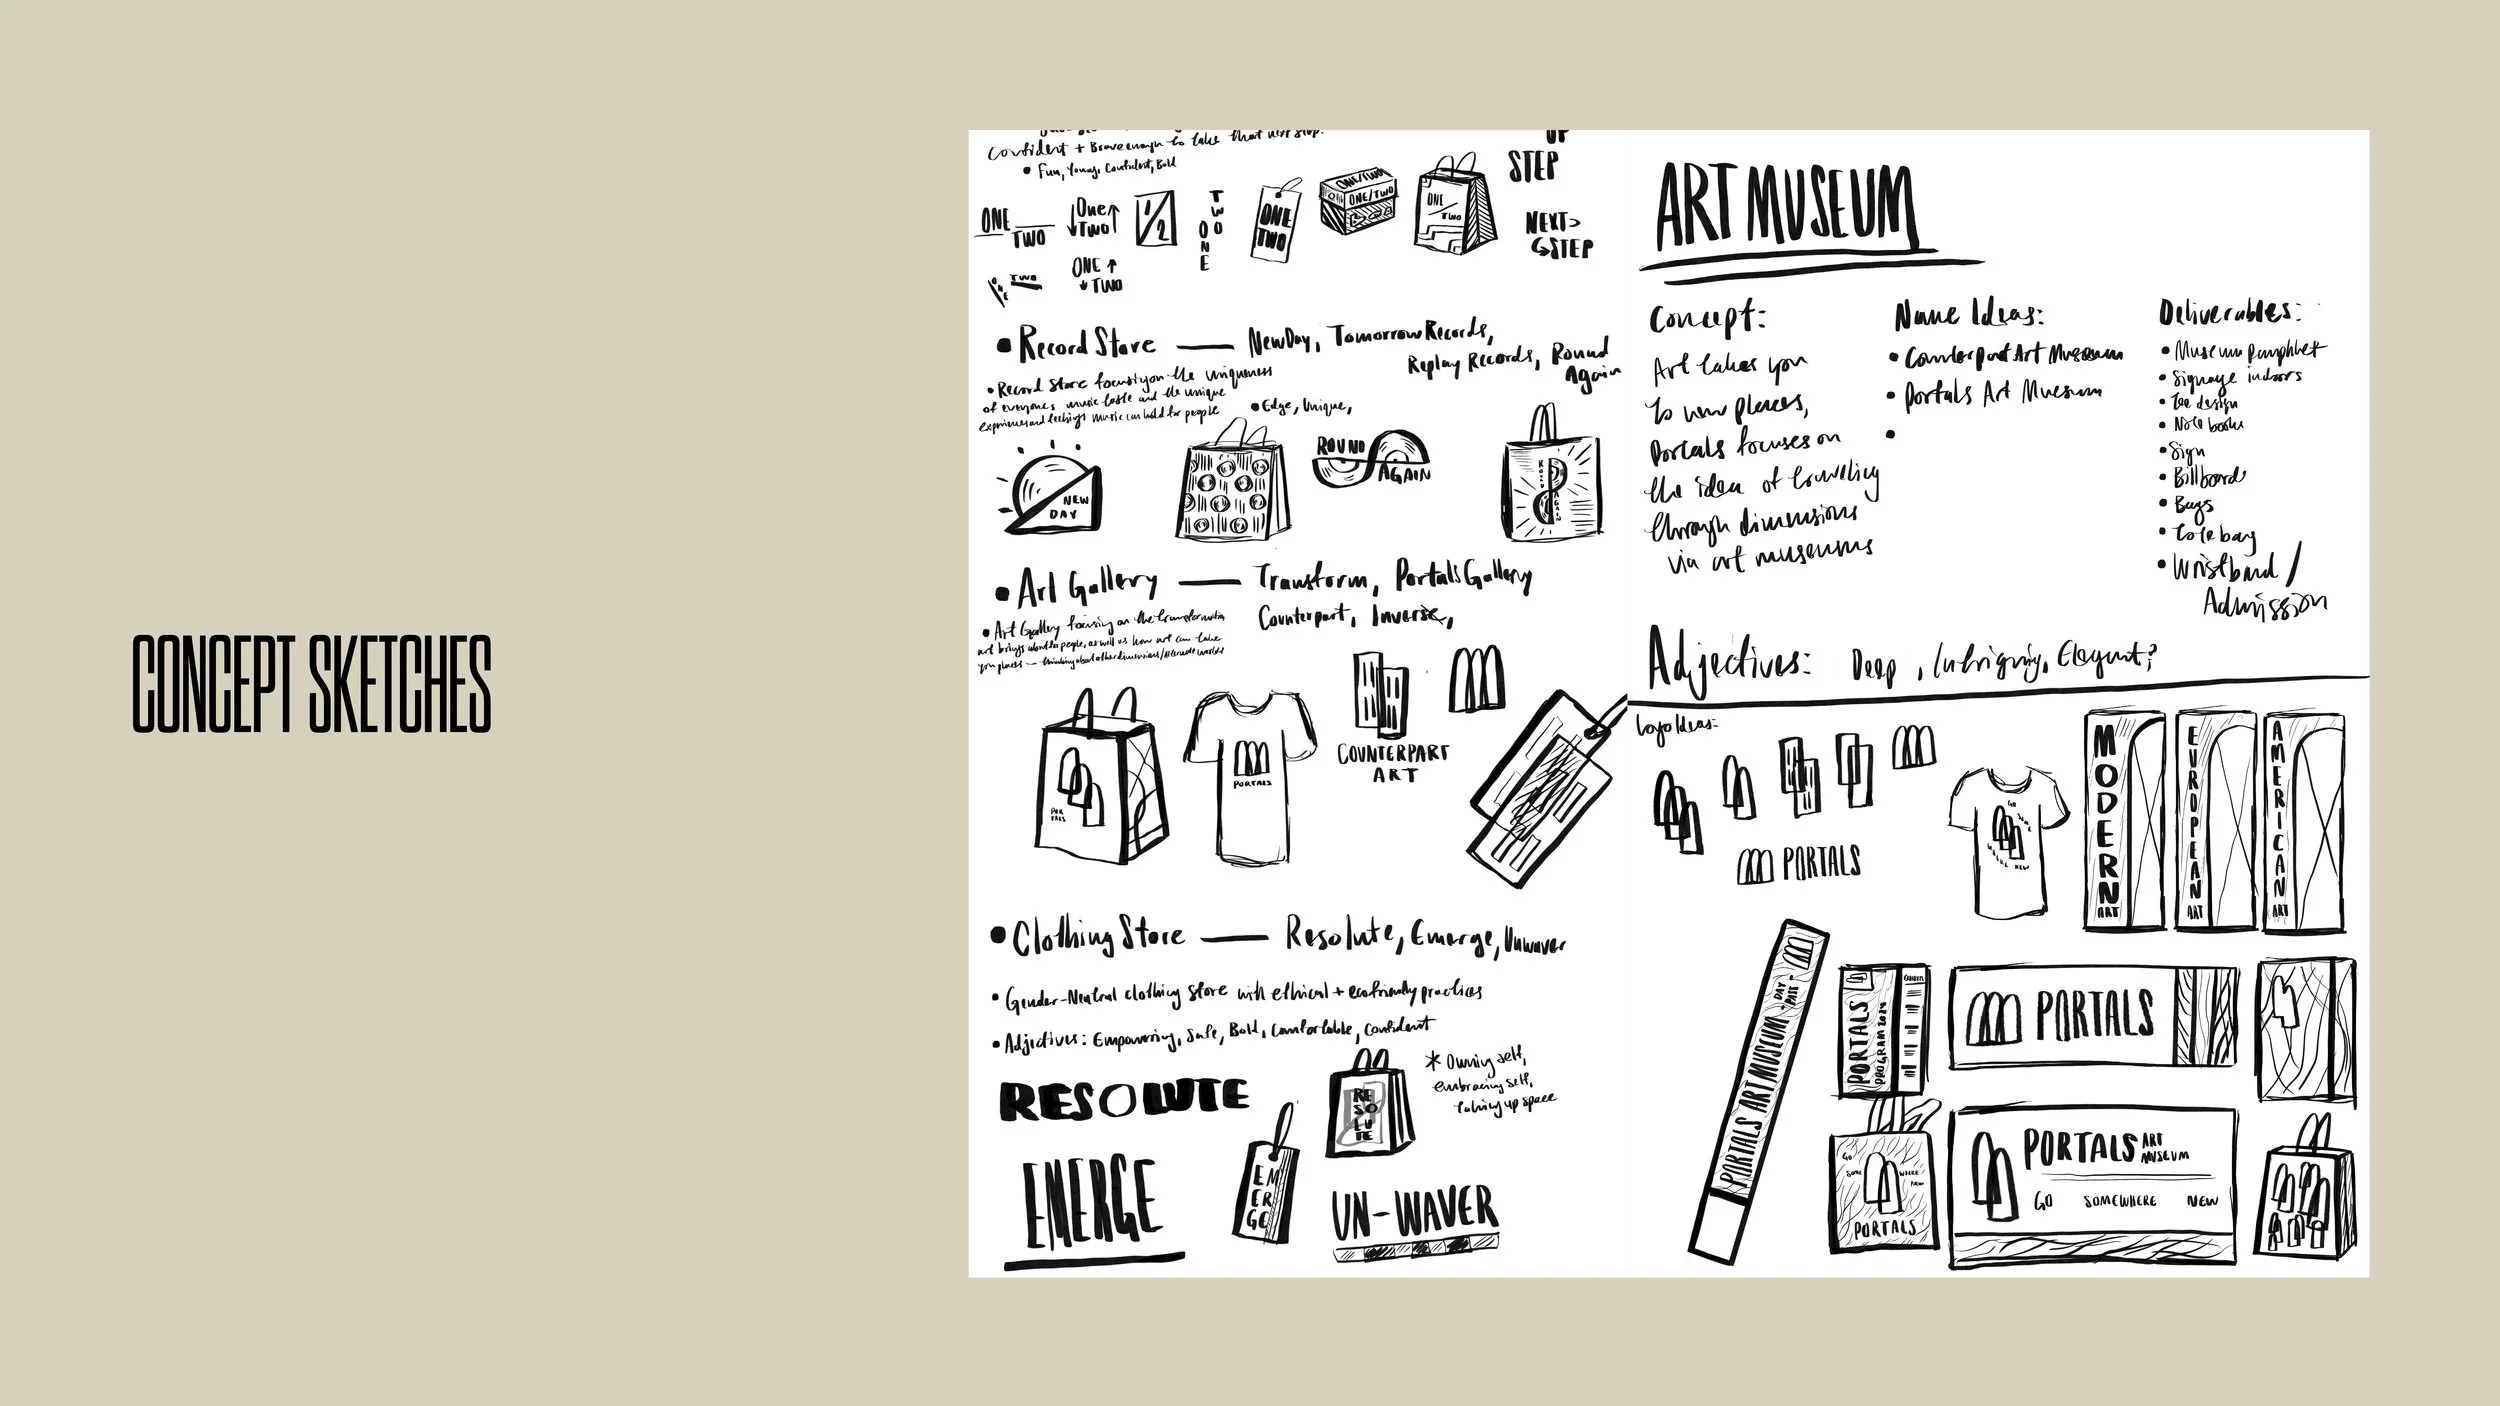 CONCEPT SKETCHES
Confident + Brave enough to take that next step.
• Fun, Young, Confident, Bold
ONE
TWO
↓One↑
Two
1/2
TWO
ONE
ONE
TWO
ONE/TWO
ONE/TWO
ONE
/ TWO
UP
STEP
NEXT>
↳STEP
ONE
TWO
ONE ↑
↓ TWO
• Record Store — New Day, Tomorrow Records,
Replay Records, Round
Again
• Record Store focusing on the uniqueness
of everyones music taste and the unique
experiences and feelings music can hold for people
• Edge, Unique,
NEW
DAY
ROUND
AGAIN
ROUND
AGAIN
• Art Gallery — Transform, Portals Gallery
Counterpart, Inverse,
• Art Gallery focusing on the transformation
art brings about for people, as well as how art can take
you places — thinking about other dimensions/alternate worlds
POR
TALS
PORTALS
COUNTERPART
ART
• Clothing Store — Resolute, Emerge, Unwaver
• Gender-Neutral clothing store with ethical + ecofriendly practices
• Adjectives: Empowering, Safe, Bold, Comfortable, Confident
* Owning self,
embracing self,
taking up space
RESOLUTE
RE
SO
LU
TE
EMERGE
EM
ER
GE
UN-WAVER
ART MUSEUM
Concept:
Art takes you
to new places,
Portals focuses on
the idea of traveling
through dimensions
via art museums
Name Ideas:
• Counterpart Art Museum
• Portals Art Museum
•
Deliverables:
• Museum pamphlet
• Signage indoors
• Tee design
• Note books
• Sign
• Billboard
• Bags
• Tote bag
• Wristband /
Admission
Adjectives: Deep, Intriguing, Elegant?
Logo Ideas:
PORTALS
GO
SOME
WHERE NEW
MODERN
ART
EUROPEAN
ART
AMERICAN
ART
PORTALS ART MUSEUM • DAY PASS •
PORTALS
PROGRAM 2024
PORTALS
GO
SOME WHERE
NEW
PORTALS
PORTALS ART
MUSEUM
GO SOMEWHERE NEW